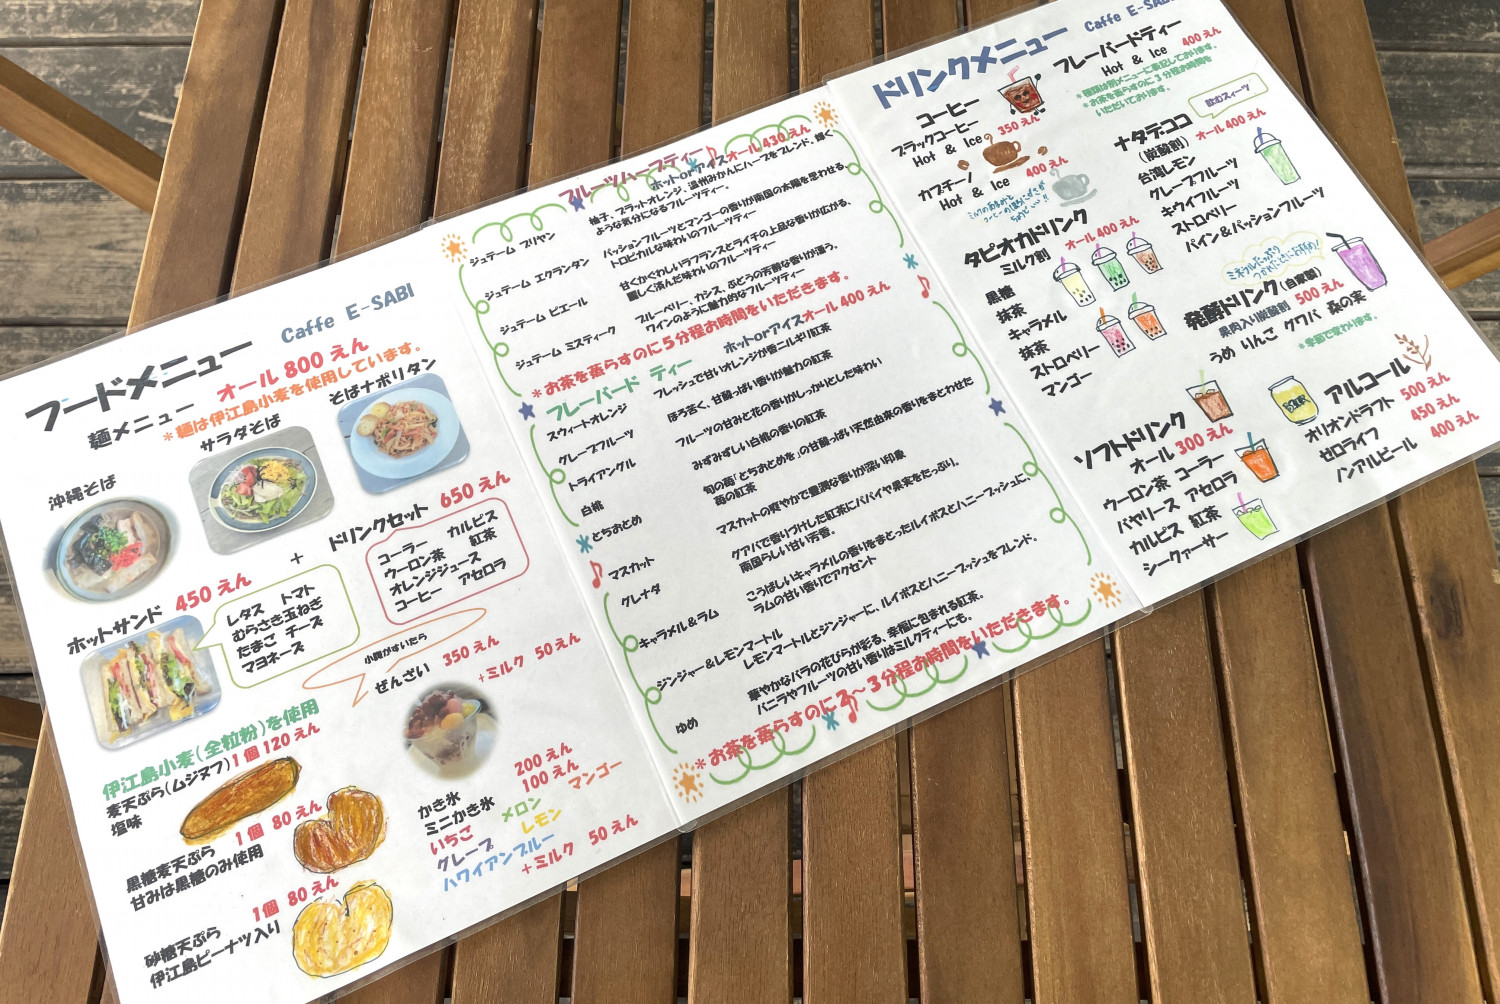 フードメニュー
Caffe E-SABI
麺メニュー オール 800 えん
＊麺は伊江島小麦を使用しています。
沖縄そば
サラダそば
そばナポリタン
ホットサンド 450 えん
＋
ドリンクセット 650 えん
レタス トマト
むらさき玉ねぎ
たまご チーズ
マヨネーズ
コーラー カルピス
ウーロン茶 紅茶
オレンジジュース
コーヒー アセロラ
小腹がすいたら
ぜんざい 350 えん
＋ミルク 50 えん
伊江島小麦（全粒粉）を使用
麦天ぷら（ムジヌフ）1 個 120 えん
塩味
黒糖麦天ぷら 1 個 80 えん
甘みは黒糖のみ使用
砂糖天ぷら 1 個 80 えん
伊江島ピーナツ入り
かき氷 200 えん
ミニかき氷 100 えん
いちご メロン マンゴー
グレープ レモン
ハワイアンブルー
＋ミルク 50 えん
フルーツハーブティー
ホット or アイス オール 430 えん
ジュテーム ブリヤン
柚子、ブラッドオレンジ、温州みかんにハーブをブレンド、輝く
ような気分になるフルーツティー。
ジュテーム エクランタン
パッションフルーツとマンゴーの香りが南国の太陽を思わせる
トロピカルな味わいのフルーツティー
ジュテーム ピエール
甘くかぐわしいラフランスとライチの上品な香りが広がる、
麗しく済んだ味わいのフルーツティー
ジュテーム ミスティーク
ブルーベリー、カシス、ぶどうの芳醇な香りが漂う、
ワインのように魅力的なフルーツティー
＊お茶を蒸らすのに５分程お時間をいただきます。
フレーバード ティー
ホット or アイス オール 400 えん
スウィートオレンジ フレッシュで甘いオレンジが香ニルギリ紅茶
グレープフルーツ ほろ苦く、甘酸っぱい香りが魅力の紅茶
トライアングル フルーツの甘みと花の香りがしっかりとした味わい
白桃 みずみずしい白桃の香りの紅茶
とちおとめ 旬の苺「とちおとめを」の甘酸っぱい天然由来の香りをまとわせた
苺の紅茶
マスカット マスカットの爽やかで豊潤な香りが深い印象
グレナダ グアバで香りづけした紅茶にパパイヤ果実をたっぷり。
南国らしい甘い芳香。
キャラメル＆ラム こうばしいキャラメルの香りをまとったルイボスとハニーブッシュに、
ラムの甘い香りでアクセント
ジンジャー＆レモンマートル
レモンマートルとジンジャーに、ルイボスとハニーブッシュをブレンド。
ゆめ 華やかなバラの花びらが彩る、幸福に包まれる紅茶。
バニラやフルーツの甘い香りはミルクティーにも。
＊お茶を蒸らすのに２～３分程お時間をいただきます。
ドリンクメニュー
Caffe E-SABI
コーヒー
ブラックコーヒー 350 えん
Hot & Ice
カプチーノ 400 えん
Hot & Ice
フレーバードティー
Hot & Ice 400 えん
＊種類は別メニューに表記しております。
＊お茶を蒸らすのに３分程お時間を
いただいております。
飲むスイーツ
ナタデココ
（炭酸割） オール 400 えん
台湾レモン
グレープフルーツ
キウイフルーツ
ストロベリー
パイン＆パッションフルーツ
タピオカドリンク
ミルク割 オール 400 えん
黒糖
抹茶
キャラメル
抹茶
ストロベリー
マンゴー
発酵ドリンク（自家製）
果肉入り炭酸割 500 えん
うめ りんご グァバ 森の実
＊季節で変わります。
ソフトドリンク
オール 300 えん
ウーロン茶 コーラー
バヤリース アセロラ
カルピス 紅茶
シークァーサー
アルコール
オリオンドラフト 500 えん
ゼロライフ 450 えん
ノンアルビール 400 えん